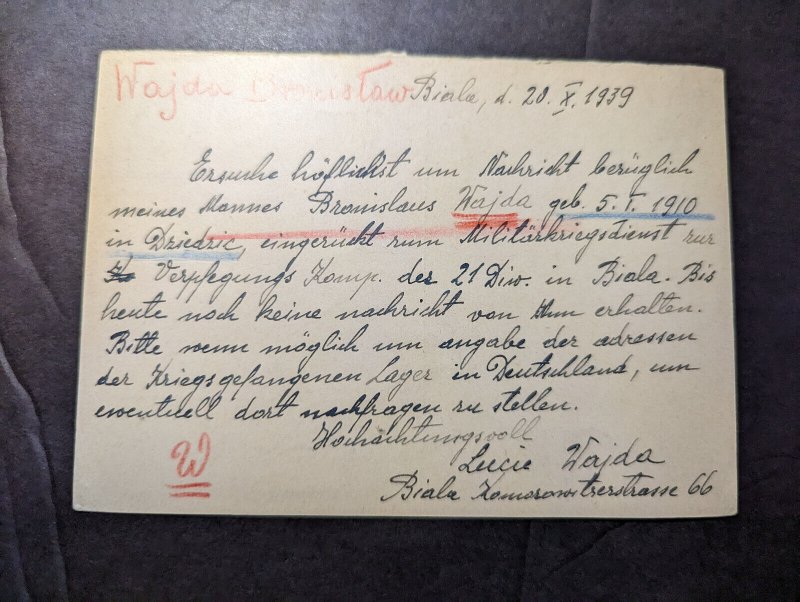 Wajda Bronisław Biala, d. 20. X. 1939
Ersuche höflichst um Nachricht bezüglich
meines Mannes Bronislaus Wajda geb. 5. I. 1910
in Dziedzic, eingerückt zum Militärkriegsdienst zur
Verpflegungs Komp. der 21 Diw. in Biala. Bis
heute noch keine nachricht von ihm erhalten.
Bitte wenn möglich um angabe der adressen
der Kriegsgefangenen Lager in Deutschland, um
ewentuell dort nachfragen zu stellen.
Hochachtungsvoll
Lucie Wajda
Biala Komorowitzerstrasse 66
W